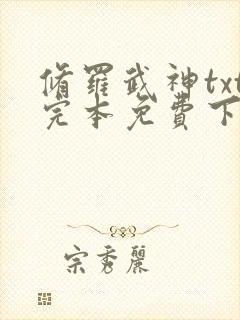 修羅武神txt
完本免費下
宗秀麗